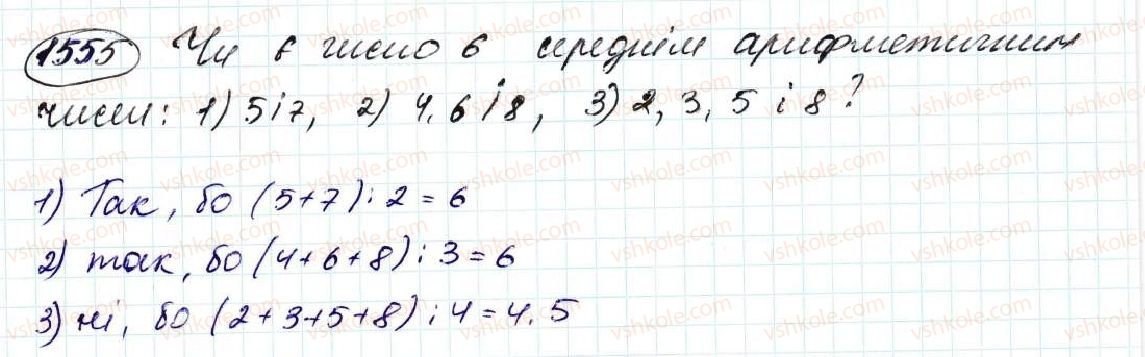 1555 Чи є число 6 середнім арифметичним
чисел: 1) 5 і 7, 2) 4, 6 і 8, 3) 2, 3, 5 і 8?
1) Так, бо (5+7):2=6
2) так, бо (4+6+8):3=6
3) ні, бо (2+3+5+8):4=4.5